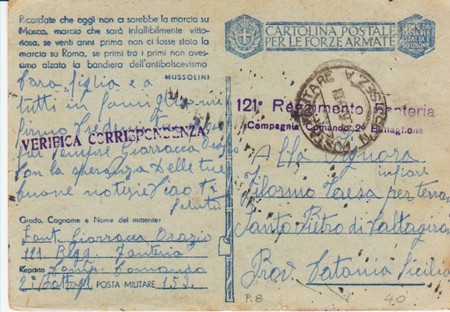 Ricordate che oggi non ci sarebbe la marcia su
Mosca, marcia che sarà infallibilmente vitto-
riosa, se venti anni prima non ci fosse stata la
marcia su Roma, se primi tra i primi non aves-
simo alzata la bandiera dell'antibolscevismo
MUSSOLINI
Cara figlia e a
tutti in famiglia mi
firmo
VERIFICA CORRISPONDENZA
per sempre Ciarracca Orazio
con la speranza delle tue
buone notizie ciao ti
saluto
Grado, Cognome e Nome del mittente:
Sant. Ciarracca Orazio
Regg. Fanteria
Reparto Comp. Comando
2° Battagl. POSTA MILITARE
CARTOLINA POSTALE
PER LE FORZE ARMATE
POSTA MILITARE
121° Reggimento Fanteria
Compagnia Comando 2° Battaglione
Alla Signora
Santo Pietro di Caltagirone
Prov. Catania Sicilia
P. 8
40